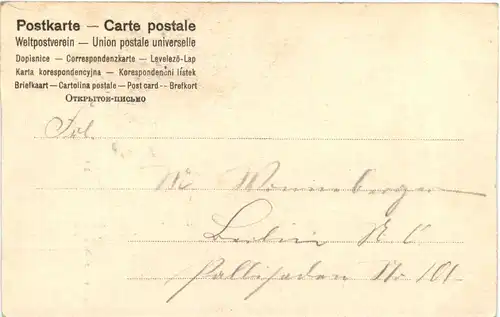 Postkarte — Carte postale
Weltpostverein — Union postale universelle
Dopisnice — Correspondenzkarte — Levelező-Lap
Karta korespondencyjna — Korespondenční lístek
Briefkaart — Cartolina postale — Post card — Brefkort
Открытое-письмо
Frl.
M Wonneberger
Berlin N. O.
Pallisaden No 101